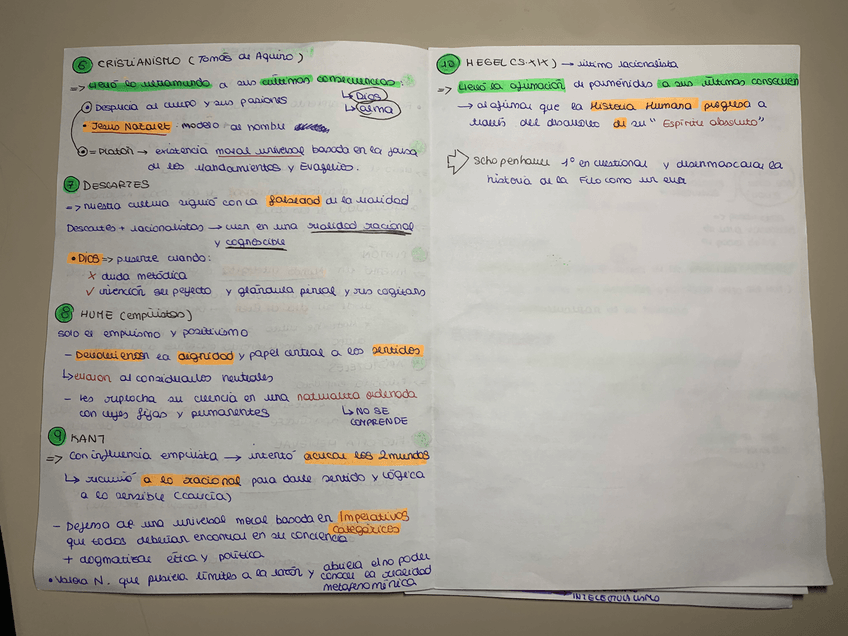 6 CRISTIANISMO (Tomás de Aquino)
=> llevó la ultramundo a sus últimas consecuencias:
↳ Dios
↳ alma
• Desprecia al cuerpo y sus pasiones
• Jesus Nazaret modelo de hombre
• = Platón → existencia moral universal basada en la
de los Mandamientos y Evagelios.
7 DESCARTES
=> nuestra cultura siguió con la falsedad de la realidad
Descartes + racionalistas → creen en una realidad racional
y cognoscible
• Dios => presente cuando:
x duda metódica
✓ invención ser perfecto y glándula pineal y res cogitans
8 HUME (empiristas)
solo el empirismo y positivismo
- Devolvieron la dignidad y papel central a los sentidos
↳ erraron al considerarlos neutrales
- les reprocha su creencia en una naturaleza ordenada
con leyes fijas y permanentes
↳ NO SE
COMPRENDE
9 KANT
=> Con influencia empirista → intentó acercar los 2 mundos
↳ recurrió a lo racional para darle sentido y lógica
a lo sensible (ciencia)
- Defensa de una universal moral basada en Imperativos
categóricos
que todos deberían encontrar en su conciencia
+ dogmatizar ética y política
• Valora N. que pusiera límites a la razón y
abriera el no poder
conocer la realidad
metafenoménica
10 HEGEL (S.XIX) → último racionalista
=> llevó la afirmación de parménides a sus últimas consecuen
→ al afirmar que la Historia Humana progresa a
través del desarrollo de su "Espíritu absoluto"
Schopenhauer 1º en cuestionar y desenmascarar la
historia de la Filo como un error
INTELECTUALISMO